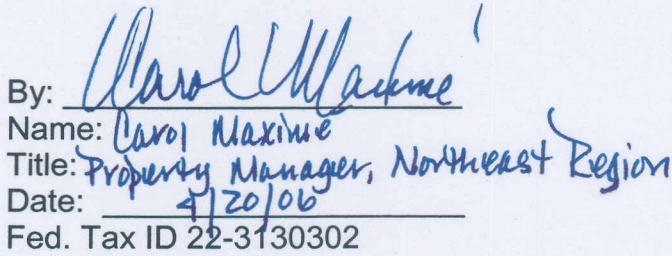 By: Carol Maxime
Name: Carol Maxime
Title: Property Manager, Northeast Region
Date: 4/20/06
Fed. Tax ID 22-3130302